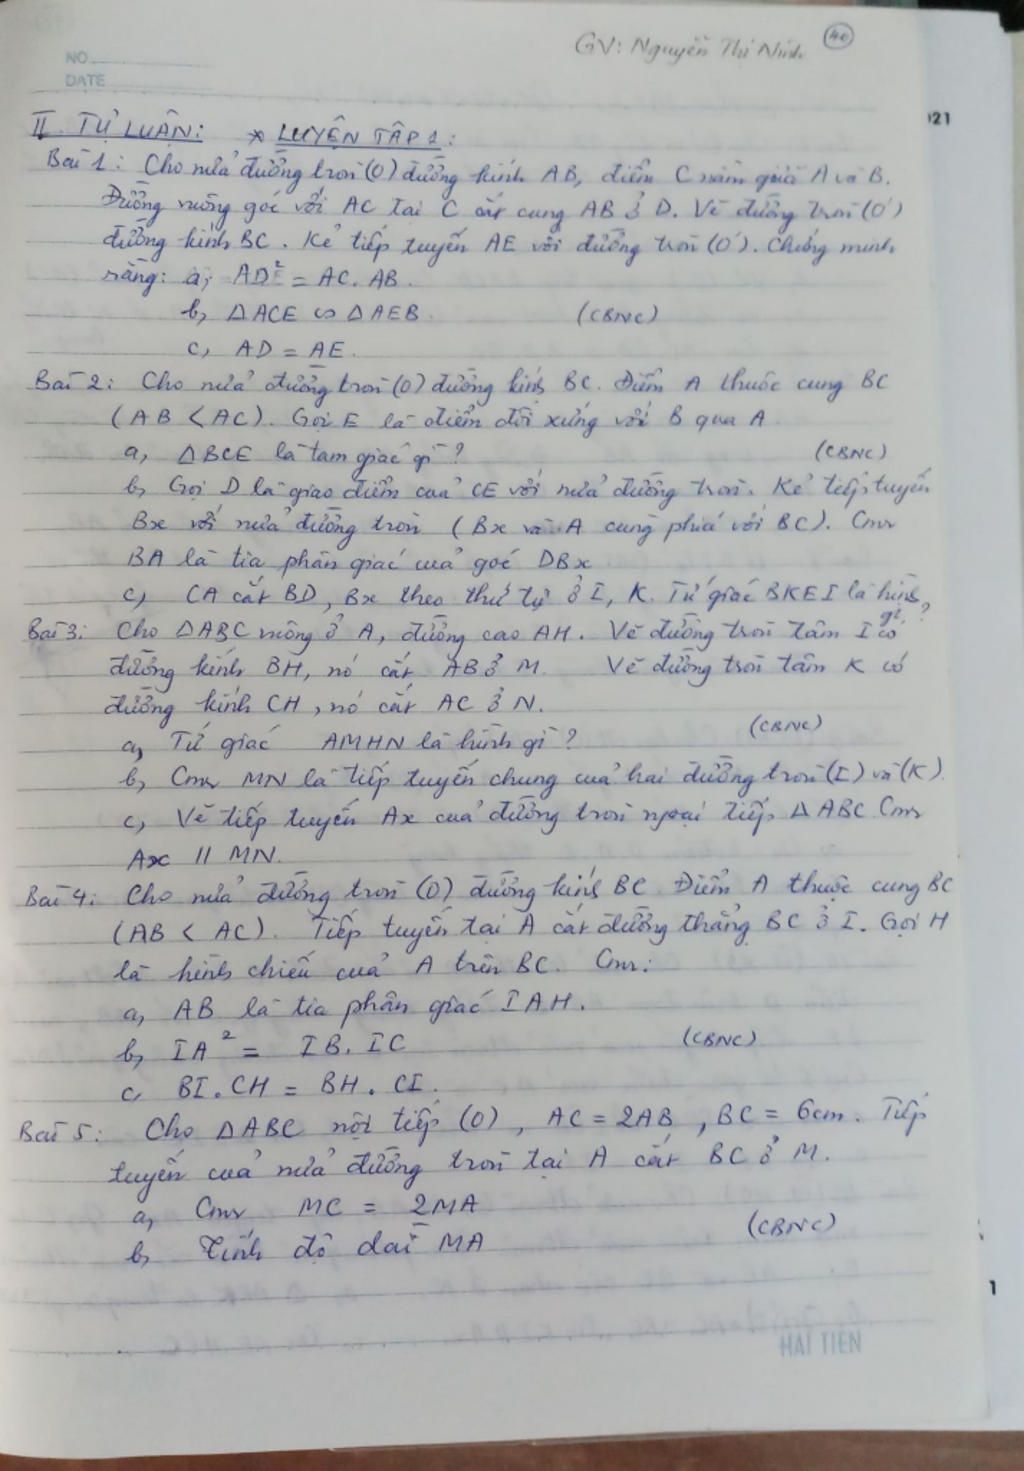 GV: Nguyễn Thị Ninh 40
NO
DATE
021
II. TỰ LUẬN: * LUYỆN TẬP 1:
Bài 1: Cho nửa đường tròn (O) đường kính AB, điểm C nằm giữa A và B.
Đường vuông góc với AC tại C cắt cung AB ở D. Vẽ đường tròn (O')
đường kính BC. Kẻ tiếp tuyến AE với đường tròn (O'). Chứng minh
rằng: a, AD² = AC. AB.
b, ΔACE ∽ ΔAEB. (CBNC)
c, AD = AE.
Bài 2: Cho nửa đường tròn (O) đường kính BC. Điểm A thuộc cung BC
(AB < AC). Gọi E là điểm đối xứng với B qua A
a, ΔBCE là tam giác gì? (CBNC)
b, Gọi D là giao điểm của CE với nửa đường tròn. Kẻ tiếp tuyến
Bx với nửa đường tròn (Bx và A cùng phía với BC). Cmr
BA là tia phân giác của góc DBx
c, CA cắt BD, Bx theo thứ tự ở I, K. Tứ giác BKEI là hình gì?
Bài 3: Cho ΔABC vuông ở A, đường cao AH. Vẽ đường tròn tâm I có
đường kính BH, nó cắt AB ở M. Vẽ đường tròn tâm K có
đường kính CH, nó cắt AC ở N.
(CBNC)
a, Tứ giác AMHN là hình gì?
b, Cmr MN là tiếp tuyến chung của hai đường tròn (I) và (K).
c, Vẽ tiếp tuyến Ax của đường tròn ngoại tiếp ΔABC. Cmr
Ax // MN.
Bài 4: Cho nửa đường tròn (O) đường kính BC. Điểm A thuộc cung BC
(AB < AC). Tiếp tuyến tại A cắt đường thẳng BC ở I. Gọi H
là hình chiếu của A trên BC. Cmr:
a, AB là tia phân giác IAH.
b, IA² = IB. IC (CBNC)
c, BI. CH = BH. CI.
Bài 5: Cho ΔABC nội tiếp (O), AC = 2AB, BC = 6cm. Tiếp
tuyến của nửa đường tròn tại A cắt BC ở M.
a, Cmr MC = 2MA
(CBNC)
b, Tính độ dài MA
1
HẢI TIẾN